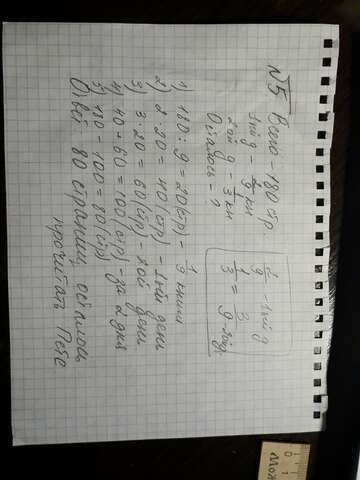 №5 Всего - 180 стр
1ый д - 2/9 кн
2ой д - 1/3 кн
Осталось - ?
2/9 - 1ый д
1/3 = 3/9 -
1) 180 : 9 = 20 (стр) - 1/9 книги
2) 2 · 20 = 40 (стр) - 1ый день
3) 3 · 20 = 60 (стр) - 2ой день.
4) 40 + 60 = 100 (стр) - за 2 дня
5) 180 - 100 = 80 (стр)
Ответ: 80 страниц осталось
прочитать Пете
Мож
0 1